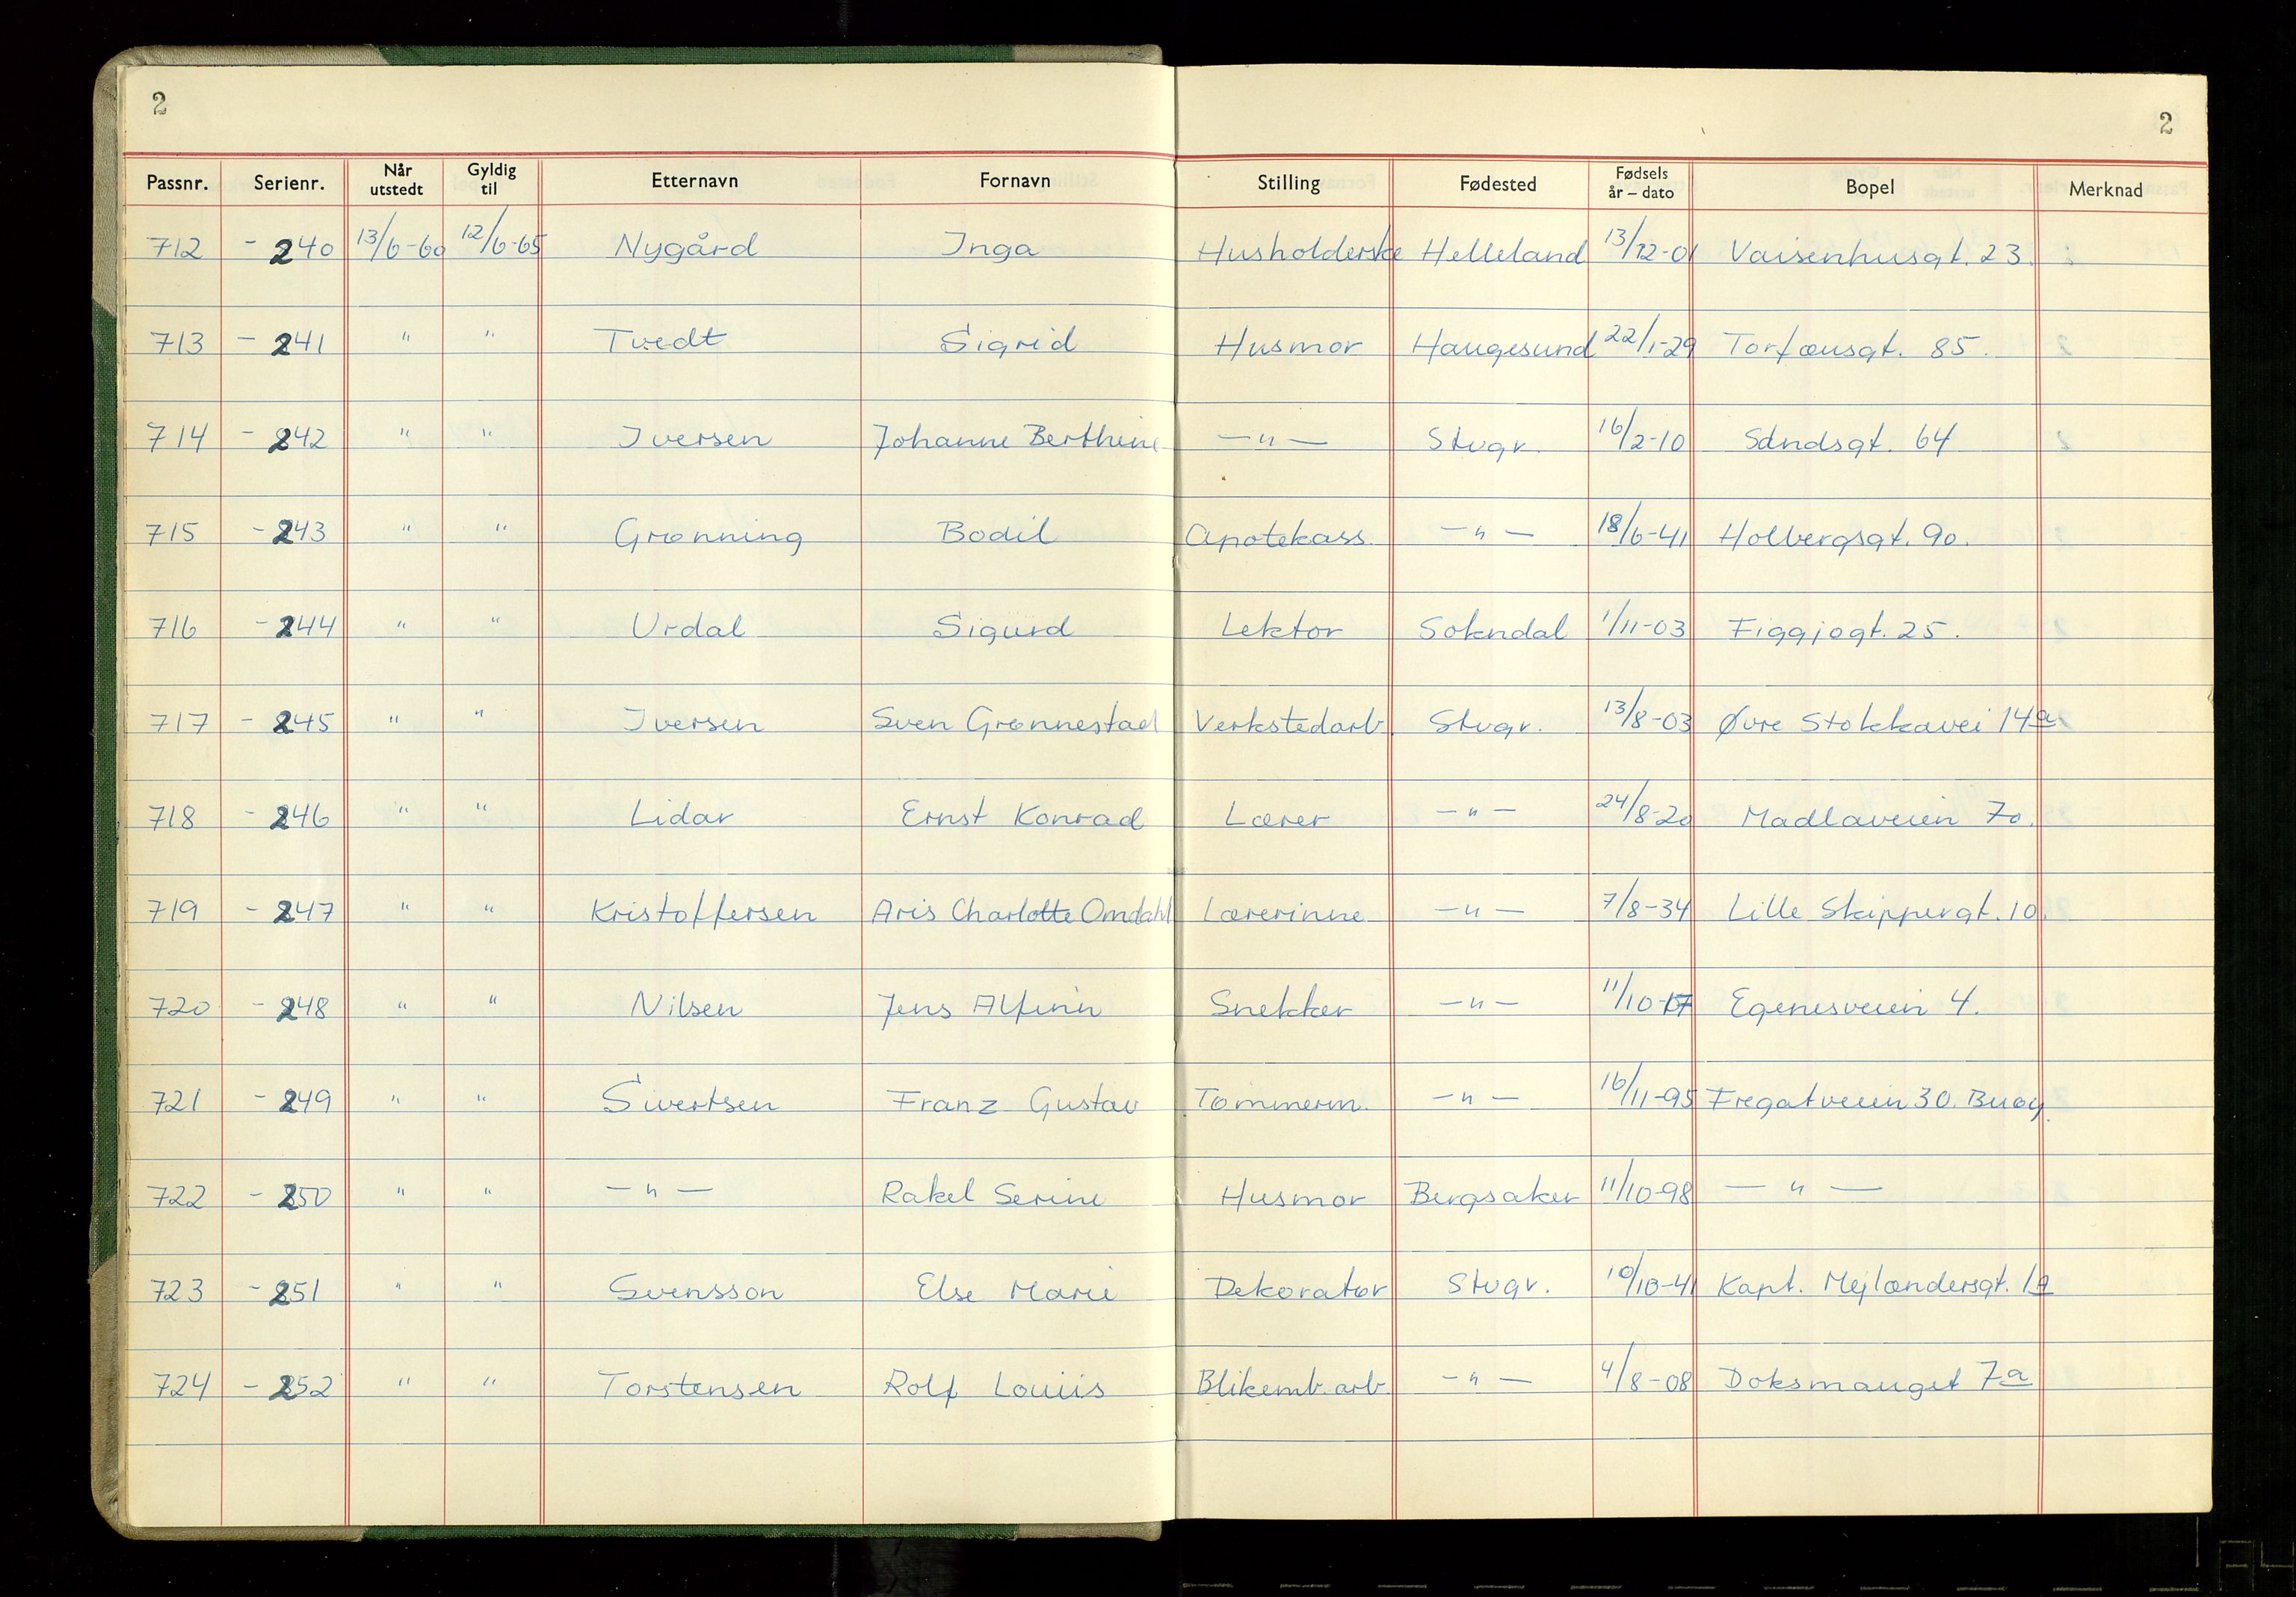 2
2
Passnr. Serienr. Når utstedt Gyldig til Etternavn Fornavn Stilling Fødested Fødsels år – dato Bopel Merknad
712 - 240 13/6-60 12/6-65 Nygård Inga Husholderske Helleland 13/12-01 Vaisenhusgt. 23.
713 - 241 " " Tvedt Sigrid Husmor Haugesund 22/1-29 Torfæusgt. 85.
714 - 242 " " Iversen Johanne Berthine — " — Stvgr. 16/2-10 Sandsgt. 64
715 - 243 " " Grønning Bodil Apotekass. — " — 18/6-41 Holbergsgt. 90.
716 - 244 " " Urdal Sigurd Lektor Sokndal 1/11-03 Figgjogt. 25.
717 - 245 " " Iversen Sven Grønnestad Verkstedarb. Stvgr. 13/8-03 Øvre Stokkavei 14a
718 - 246 " " Lidar Ernst Konrad Lærer — " — 24/8-20 Madlaveien 70.
719 - 247 " " Kristoffersen Aris Charlotte Omdahl Lærerinne — " — 7/8-34 Lille Skippergt. 10.
720 - 248 " " Nilsen Jens Alfinn Snekker — " — 11/10-17 Egenesveien 4.
721 - 249 " " Sivertsen Franz Gustav Tømmerm. — " — 16/11-95 Fregatveien 30. Buøy.
722 - 250 " " — " — Rakel Serine Husmor Bergsaker 11/10-98 — " —
723 - 251 " " Svensson Else Marie Dekoratør Stvgr. 10/10-41 Kapt. Mejlændersgt. 1a
724 - 252 " " Torstensen Rolf Louiis Blikemb.arb. — " — 4/8-08 Doksmauget 7a